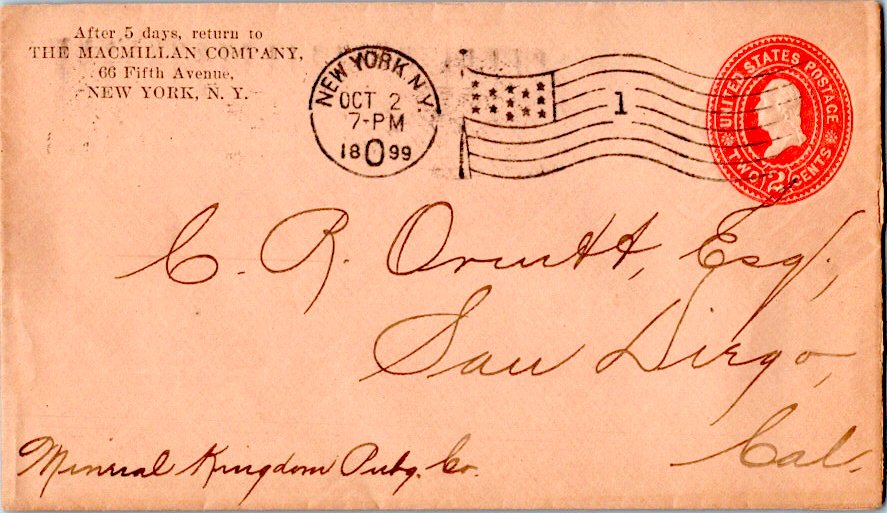 After 5 days, return to
THE MACMILLAN COMPANY,
66 Fifth Avenue,
NEW YORK, N. Y.
NEW YORK, N.Y.
OCT 2
7-PM
1899
0
1
UNITED STATES POSTAGE
TWO 2 CENTS
C. R. Orcutt, Esq.,
San Diego,
Cal.
Mineral Kingdom Pubg. Co.